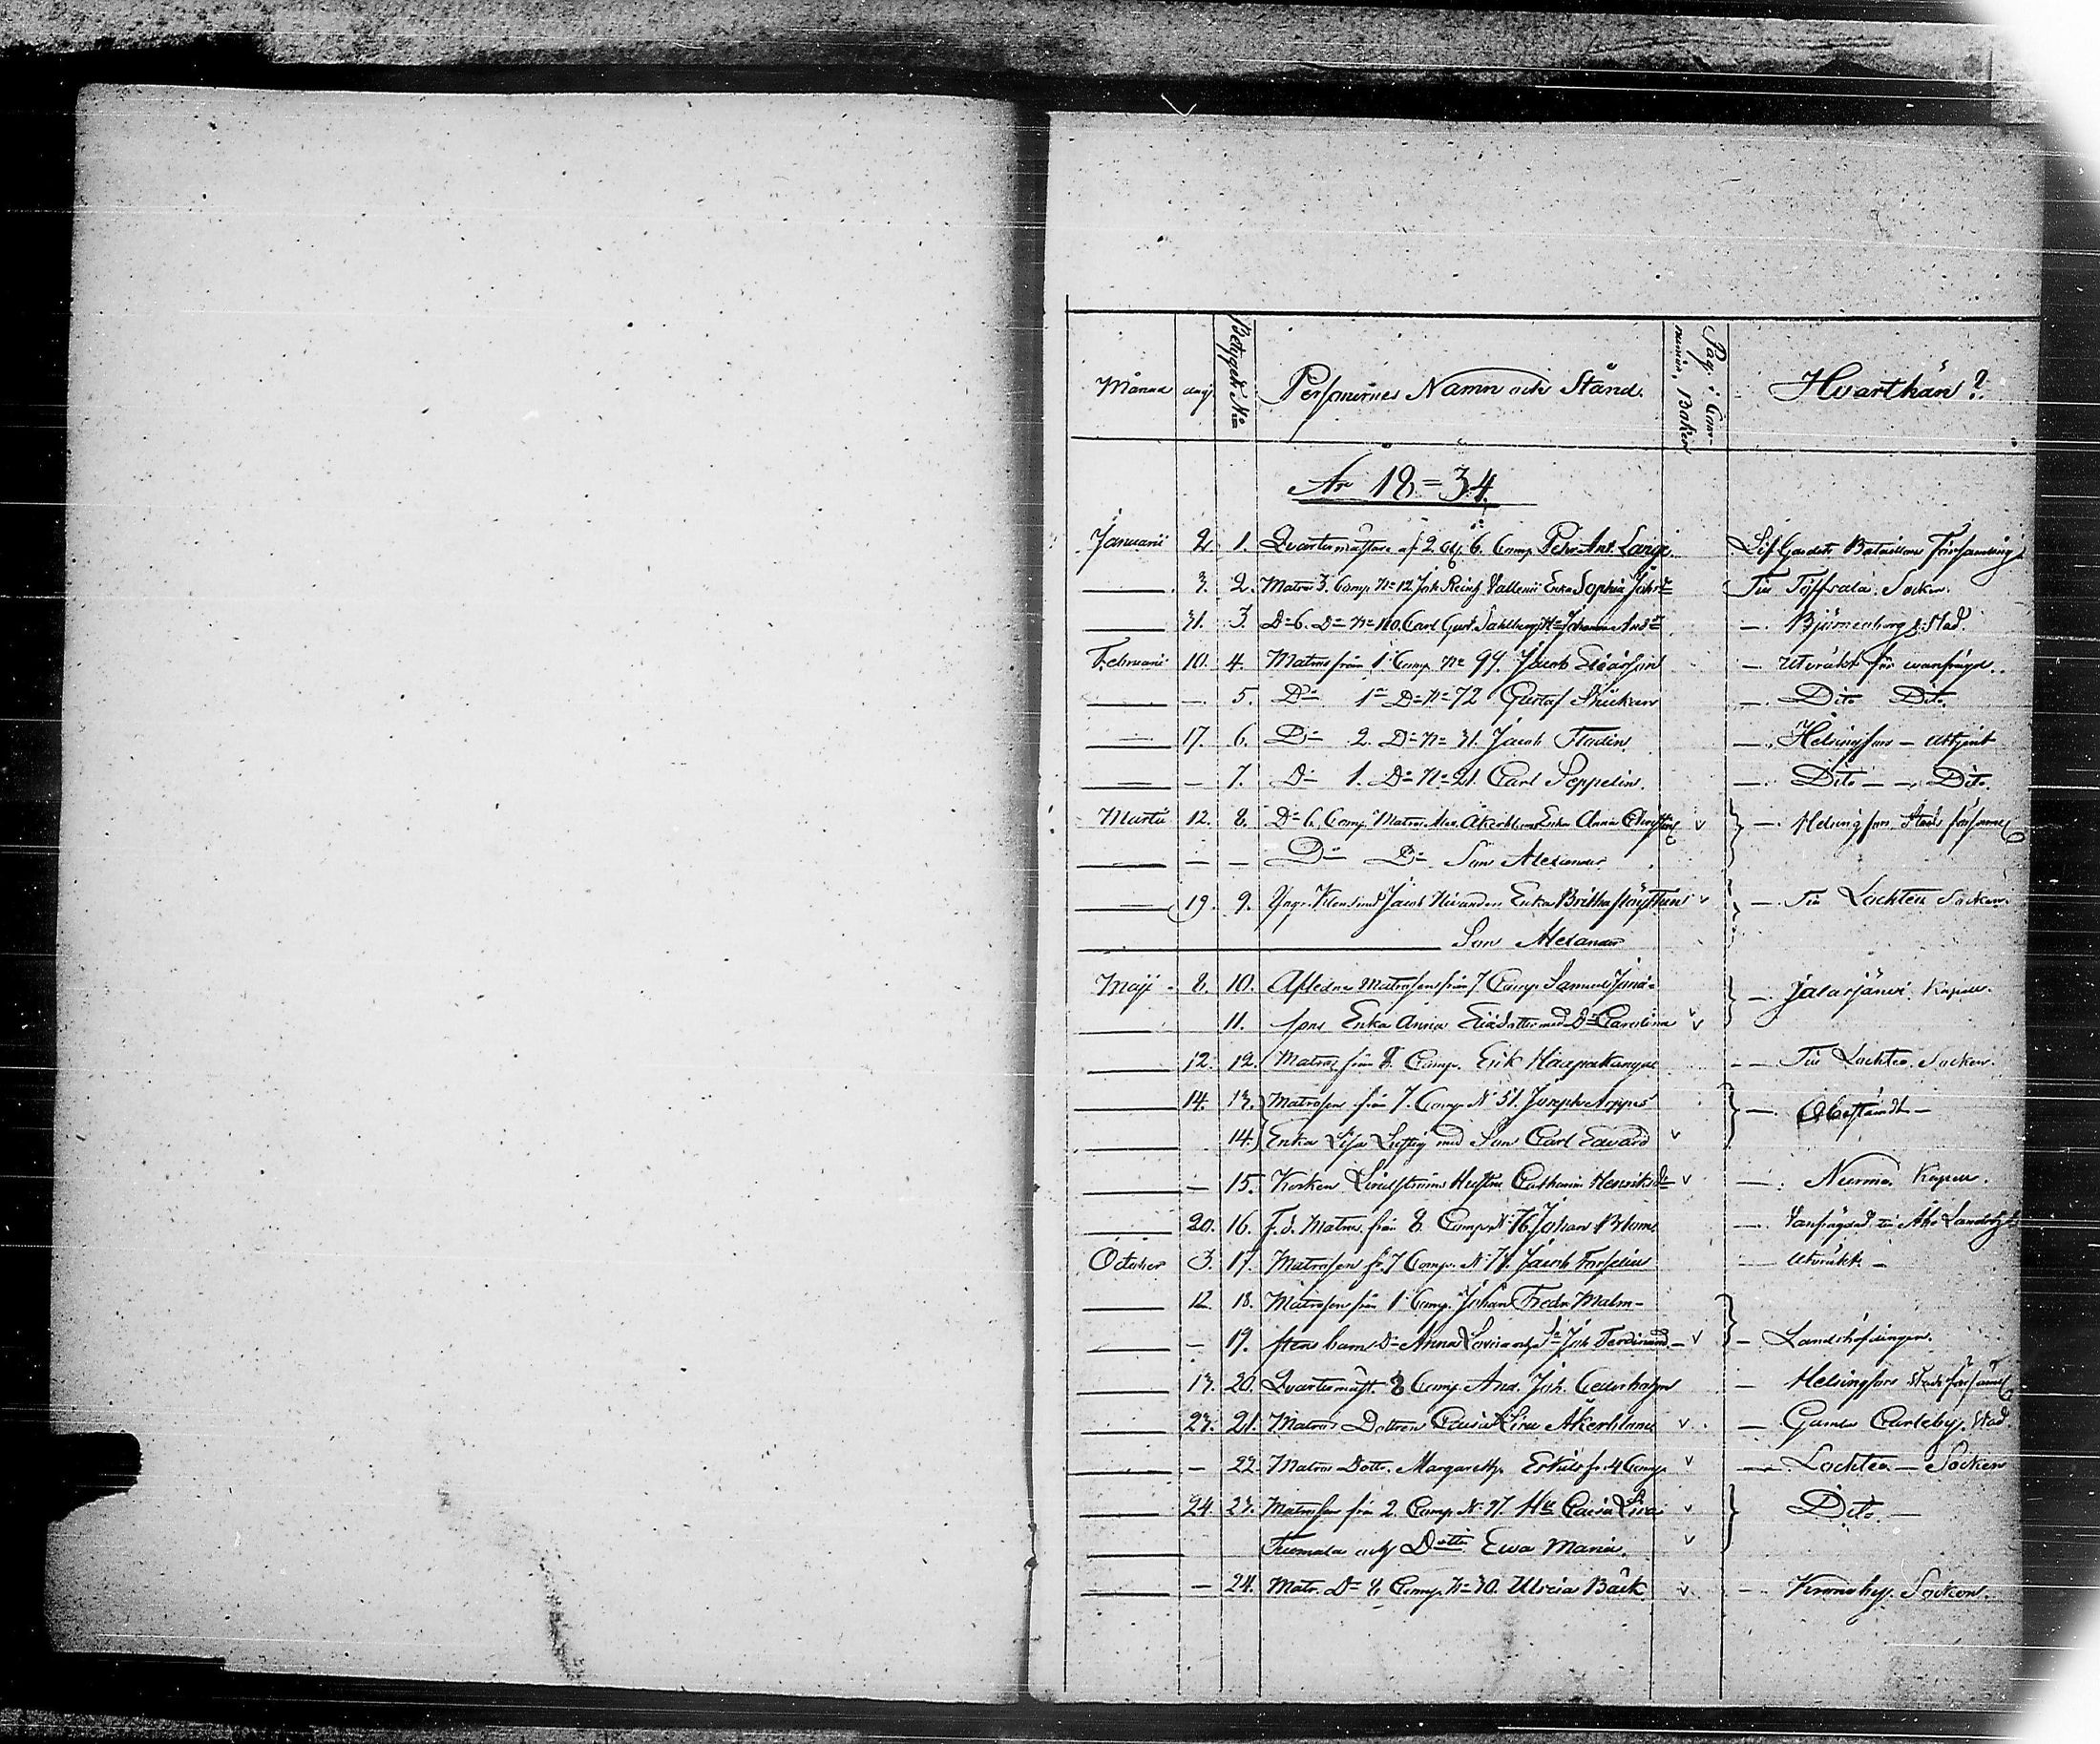 Månad dag Betygets No Personernes Namn och Stånd. Pag. i Communion Boken Hvarthän?
År 18=34.
Januarii 2. 1. Qvartermästare af 2. 6. Comp. Pehr Ant. Lange. Lif Gardets Bataillons Församling
3. 2. Matros 3. Comp. No 12 Joh. Enka Sophia Till Socken.
31. 3. Do 6. Do No 110. Carl Gust. Johanna — Björneborgs Stad.
Februarii 10. 4. Matros från 1 Comp. No 99. Jacob — utvräkt för
— 5. Do 1 Do No 72 Gustaf — Dito Dito.
17. 6. Do 2. Do No 31. Jacob Flodin — Helsingfors —
— 7. Do 1. Do No 21. Carl Seppelin. — Dito — Dito.
Martii 12. 8. Do 6. Comp. Matros Alex. Åkerblom Enka Anna Christina v — Helsingfors Stads församl
— — Do Do Son Alexander
19. 9. Jacob Nivander Enka Britha v — Till Lochteå Socken.
Son Alexander
Maji 8. 10. Afledne Matrosens från 7 Comp. Samuel — Jalasjärvi Kapell.
11. sons Enka Anna Eliædotter med Do Carolina v
12. 12. Matros från 8. Comp. Erik Haapakangas — Till Lochteå Socken.
14. 13. Matrosen från 7. Comp. N 51. Joseph — Obestämdt —
14. Enka Lisa Luftig med Son Carl Edvard v
— 15. Korken Lindströms Hustru Catharina Henriksdr v — Nurmo Kapell.
20. 16. F. d. Matros från 8. Comp. N 76 Johan Blom — till Åbo
October 3. 17. Matrosen fr. 7 Comp. N 71. Jacob Forselius — utvräkt —
12. 18. Matrosen från 1 Comp. Johan Fredr. Malm-
— 19. stens barn Do Anna Lovisa och So Joh. Ferdinand — v — Landshöfdingen.
13. 20. Qvartermäst. 8 Comp. And. Joh. Cederholm — Helsingfors stadsförsaml
23. 21. Matros Dottren Caisa Lisa Åkerblom v — Gamla Carleby Stad
— 22. Matros Dotter. Margaretha Erkils fr. 4 Comp. v — Lochteå — Socken
24. 23. Matrosen från 2. Comp. N 97. Hu Caisa Lisa v Dito. —
Tuomala och Dotter Ewa Maria. v
— 24. Matr. Do 4 Comp. No 30. Ulrica Bäck v — Kronoby Socken.